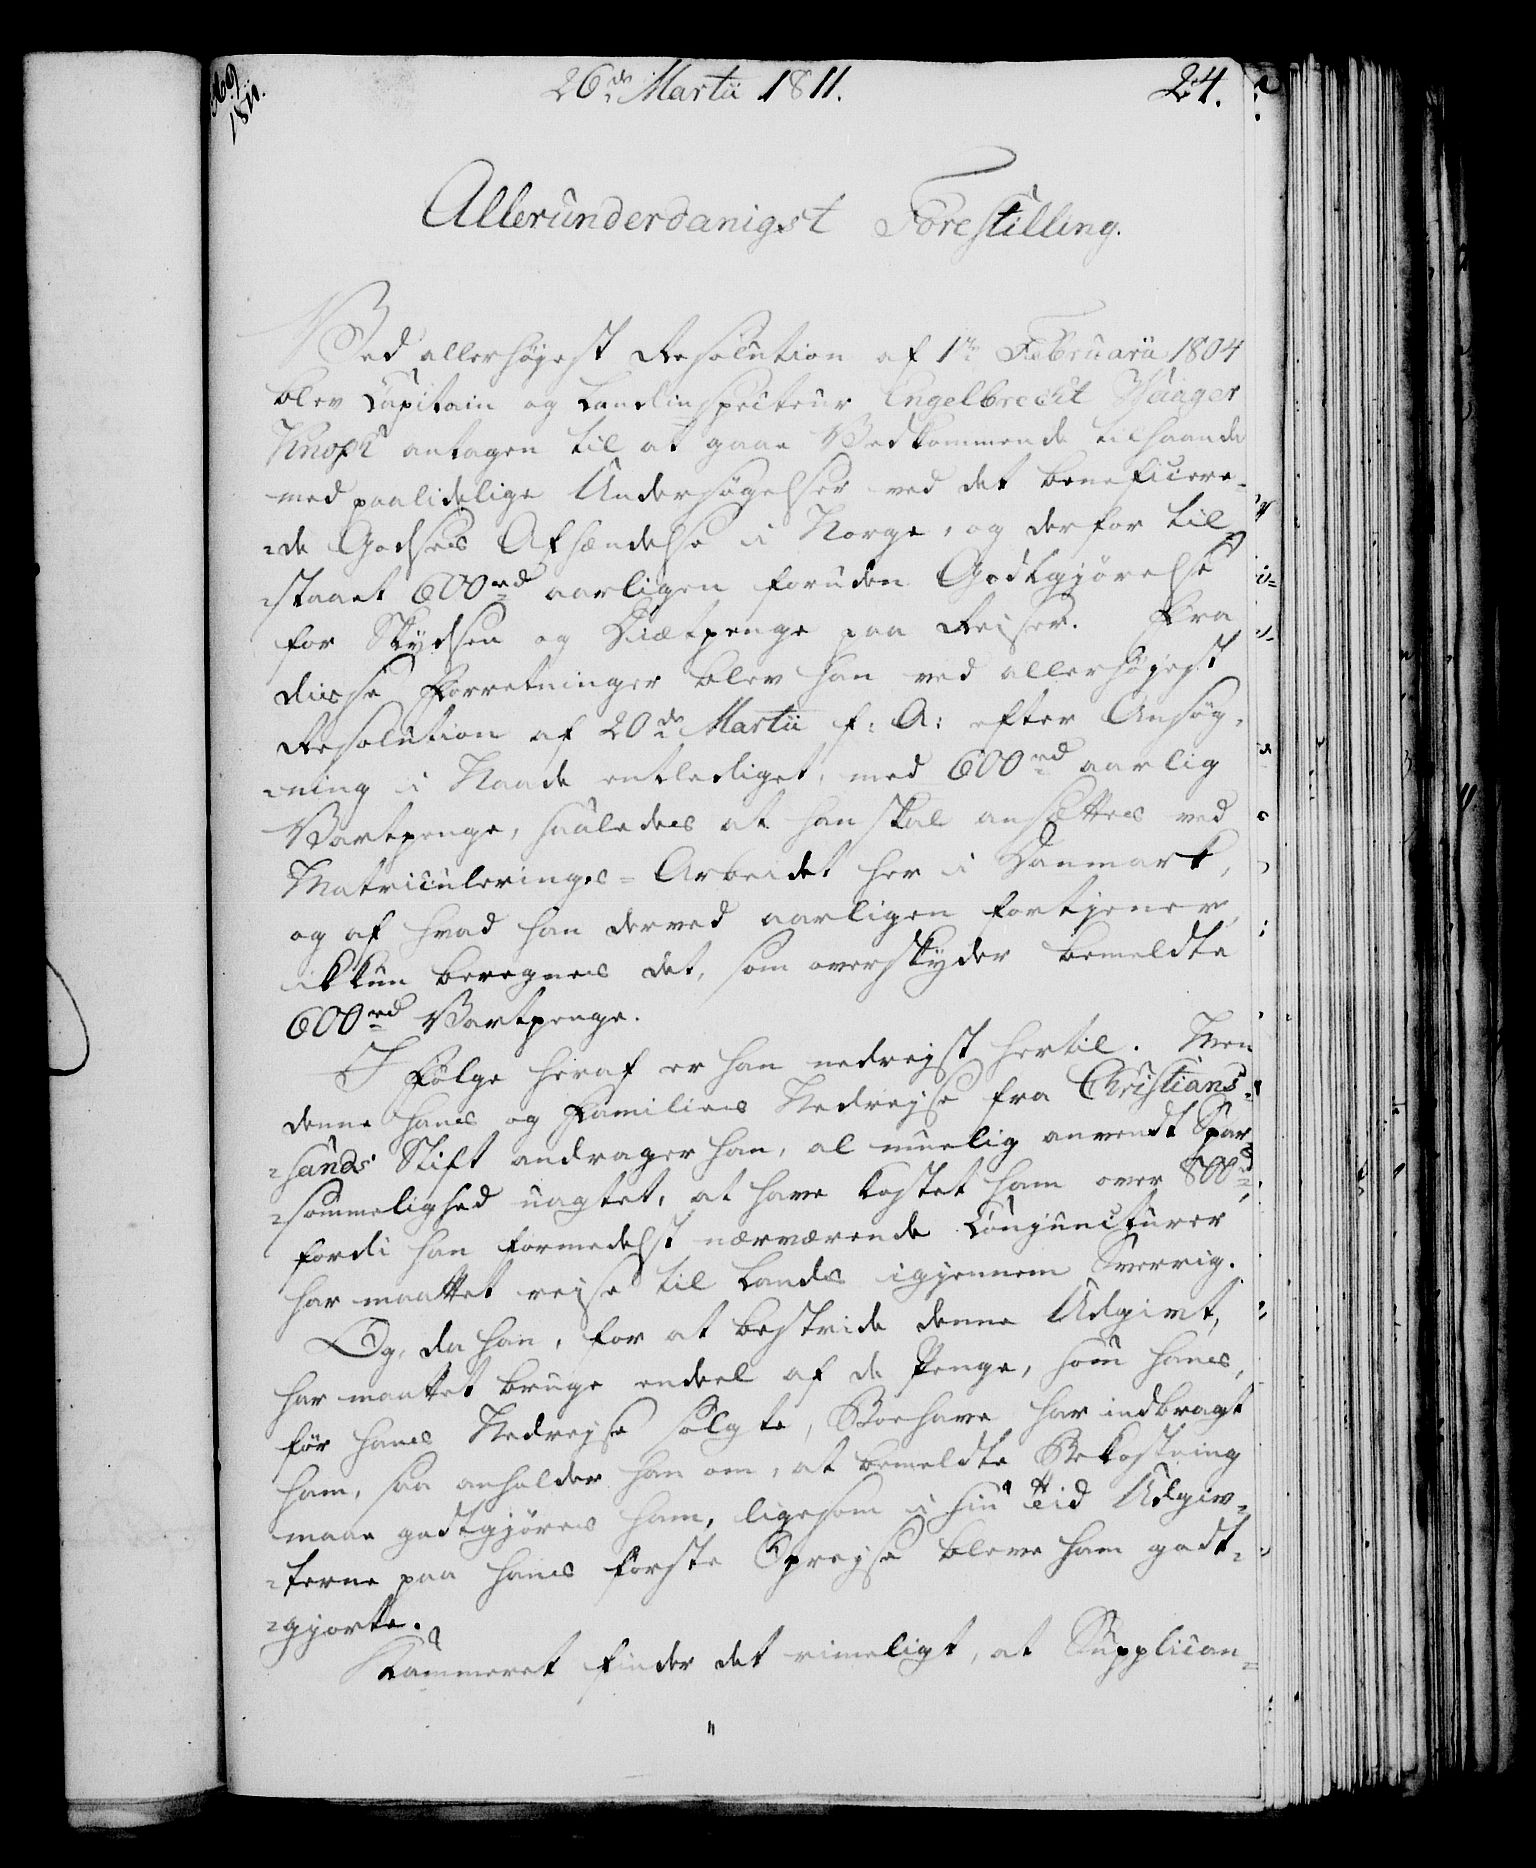 1811.
26de Martii 1811.
24.
Allerunderdanigst Forestilling.
Ved allerhøjest Resolution af 1te Februarii 1804
blev Capitain og Landinspecteur Engelbrecht
Knoph antagen til at gaae Vedkommende tilhaande
med paalidelige Undersøgelser ved det beneficere-
-de Godses Afhændelse i Norge, og derfor til-
-staaet 600rd aarligen foruden Godtgjørelse
for Skydsen og Diætpenge paa Reiser. Fra
disse Forretninger blev han ved allerhøjest
Resolution af 20de Martii f: A: efter Ansøg-
-ning i Naade entlediget, med 600rd aarlig
Vartpenge, saaledes at han skal ansættes ved
Matriculerings-Arbeidet her i Danmark,
og af hvad han derved aarligen fortjener,
ikkun beregnes det, som overskyder bemeldte
600rd Vartpenge.
I Følge heraf er han nedrejst hertil. Men
denne hans og Familiens Nedrejse fra Christian-
-sands Stift andrager han, al muelig anvendt Spar-
-sommelighed uagtet, at have kostet ham over 800rd,
fordi han formedelst nærværende Conjuncturer
har maattet rejse til Lands igjennem Sverrig.
Og, da han, for at bestride denne Udgivt,
har maattet bruge endeel af de Penge, som hans,
før hans Nedrejse solgte, Boehave har indbragt
ham, saa anholder han om, at bemeldte Bekostning
maae godtgjøres ham, ligesom i sin Tid Udgiv-
-terne paa hans første Oprejse bleve ham godt-
-gjorte.
Kammeret finder det rimeligt, at Supplican-